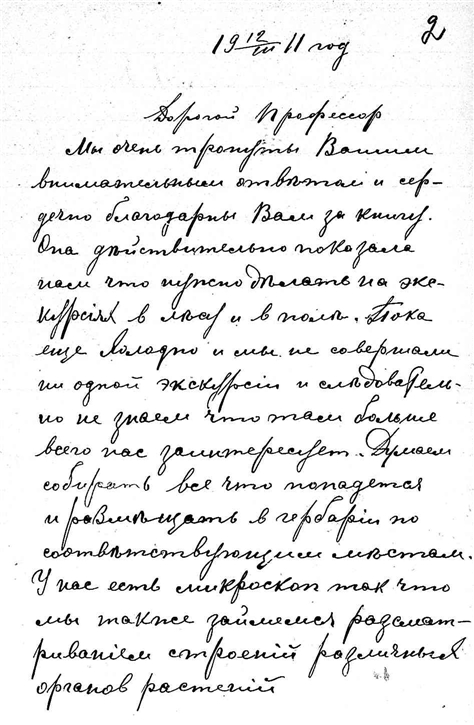 2
19 12/III 11 год
Дорогой Профессор
Мы очень тронуты Вашим
внимательным отвѣтом и сер-
дечно благодарны Вам за книгу.
Она дѣйствительно показала
нам что нужно дѣлать на экс-
курсіях в лѣсу и в полѣ. Пока
еще холодно и мы не совершали
ни одной экскурсіи и слѣдователь-
но не знаем что там больше
всего нас заинтересует. Думаем
собирать все что попадется
и размѣщать в гербаріи по
соотвѣтствующим мѣстам.
У нас есть микроскоп так что
мы также займемся разсмат-
риваніем строеній различных
органов растеній